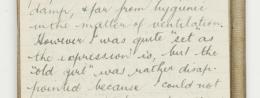 damp, & far from hygienic
in the matter of ventilation.
However I was quite "set as
the expression is, but the
"old girl" was rather disap-
pointed because I could not